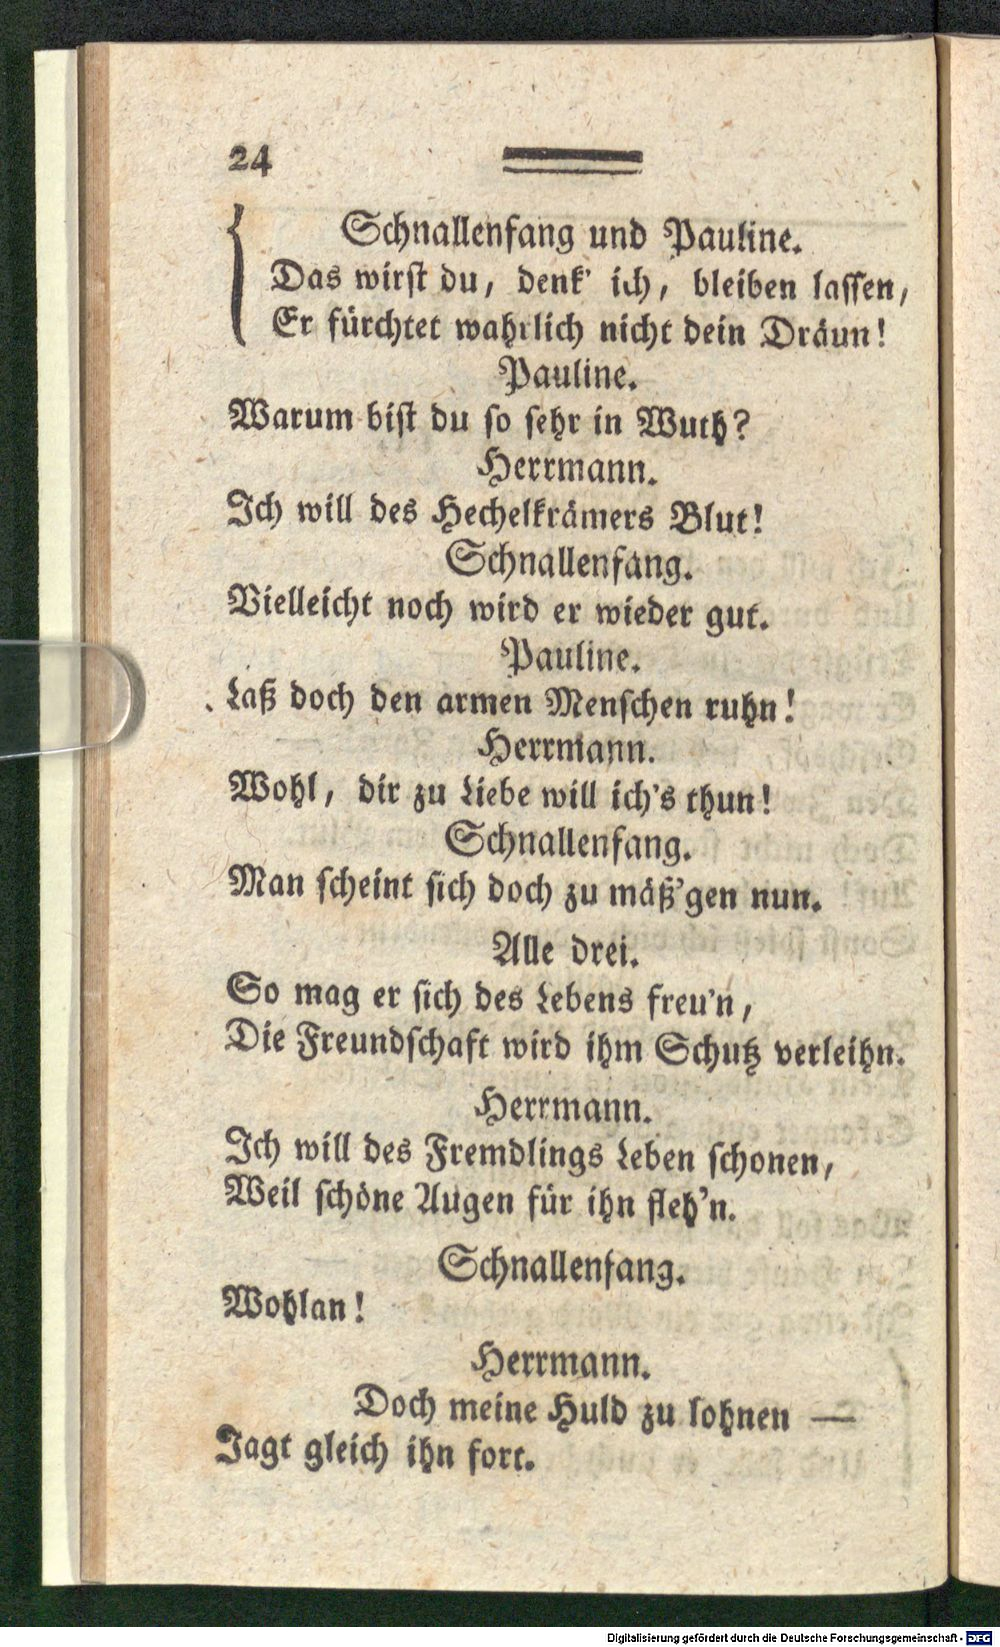 24
Schnallenfang und Pauline.
Das wirst du, denk' ich, bleiben lassen,
Er fürchtet wahrlich nicht dein Dräun!
Pauline.
Warum bist du so sehr in Wuth?
Herrmann.
Ich will des Hechelkrämers Blut!
Schnallenfang.
Vielleicht noch wird er wieder gut.
Pauline.
Laß doch den armen Menschen ruhn!
Herrmann.
Wohl, dir zu Liebe will ich's thun!
Schnallenfang.
Man scheint sich doch zu mäß'gen nun.
Alle drei.
So mag er sich des Lebens freu'n,
Die Freundschaft wird ihm Schutz verleihn.
Herrmann.
Ich will des Fremdlings Leben schonen,
Weil schöne Augen für ihn fleh'n.
Schnallenfang.
Wohlan!
Herrmann.
Doch meine Huld zu lohnen —
Jagt gleich ihn fort.
Digitalisierung gefördert durch die Deutsche Forschungsgemeinschaft - DFG